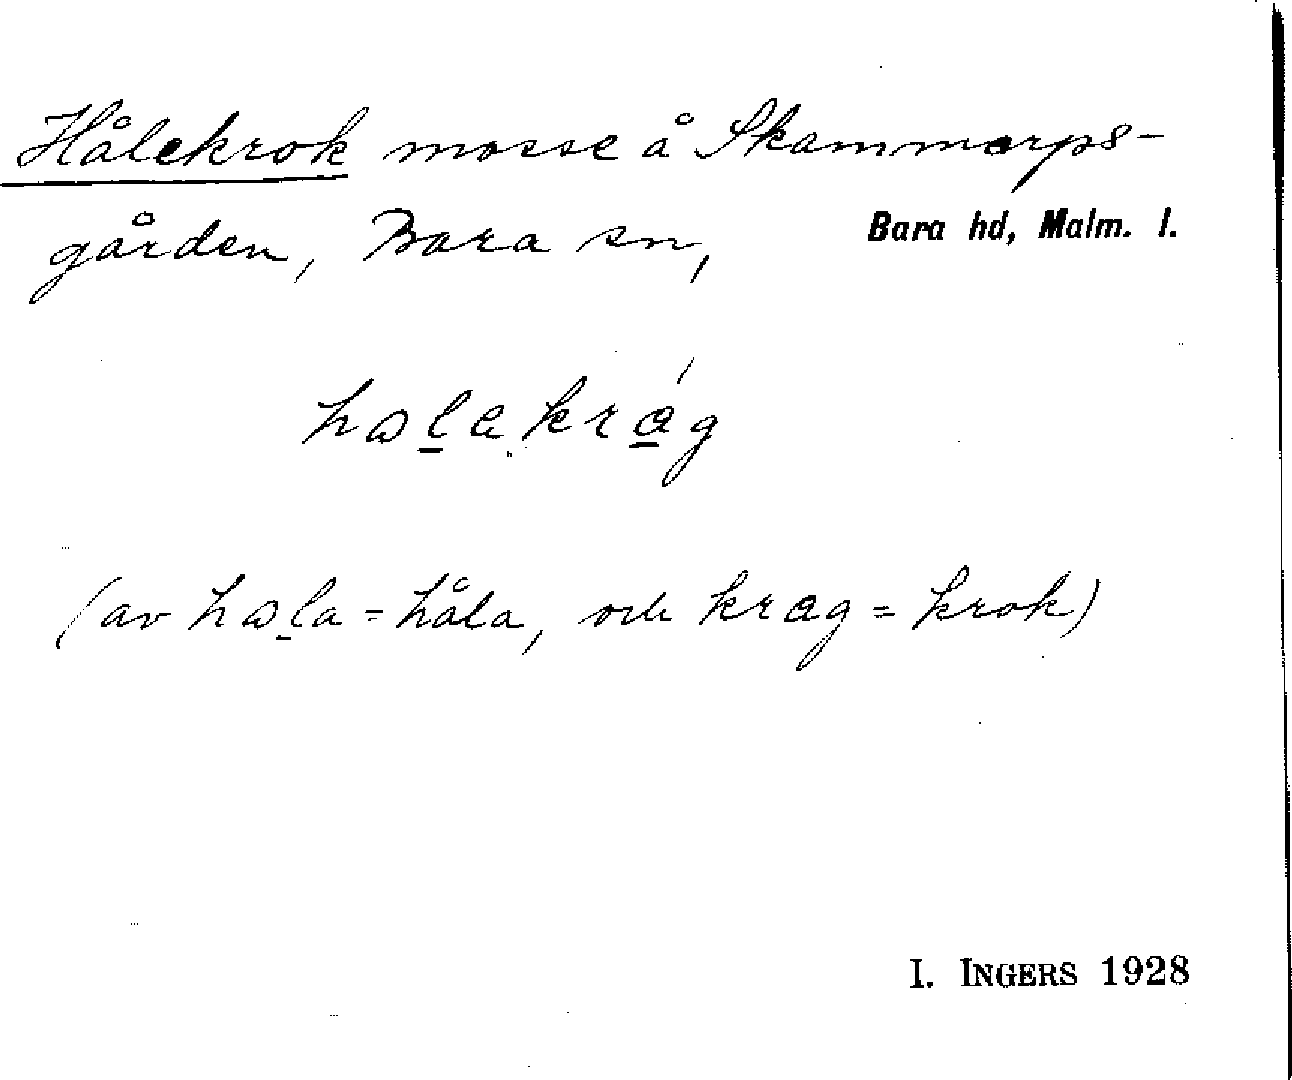 Hålekrok mosse å Skammarps-
gården, Bara sn, Bara hd, Malm. l.
halakråg
(av hala = håla, och krag = krok)
I. INGERS 1928